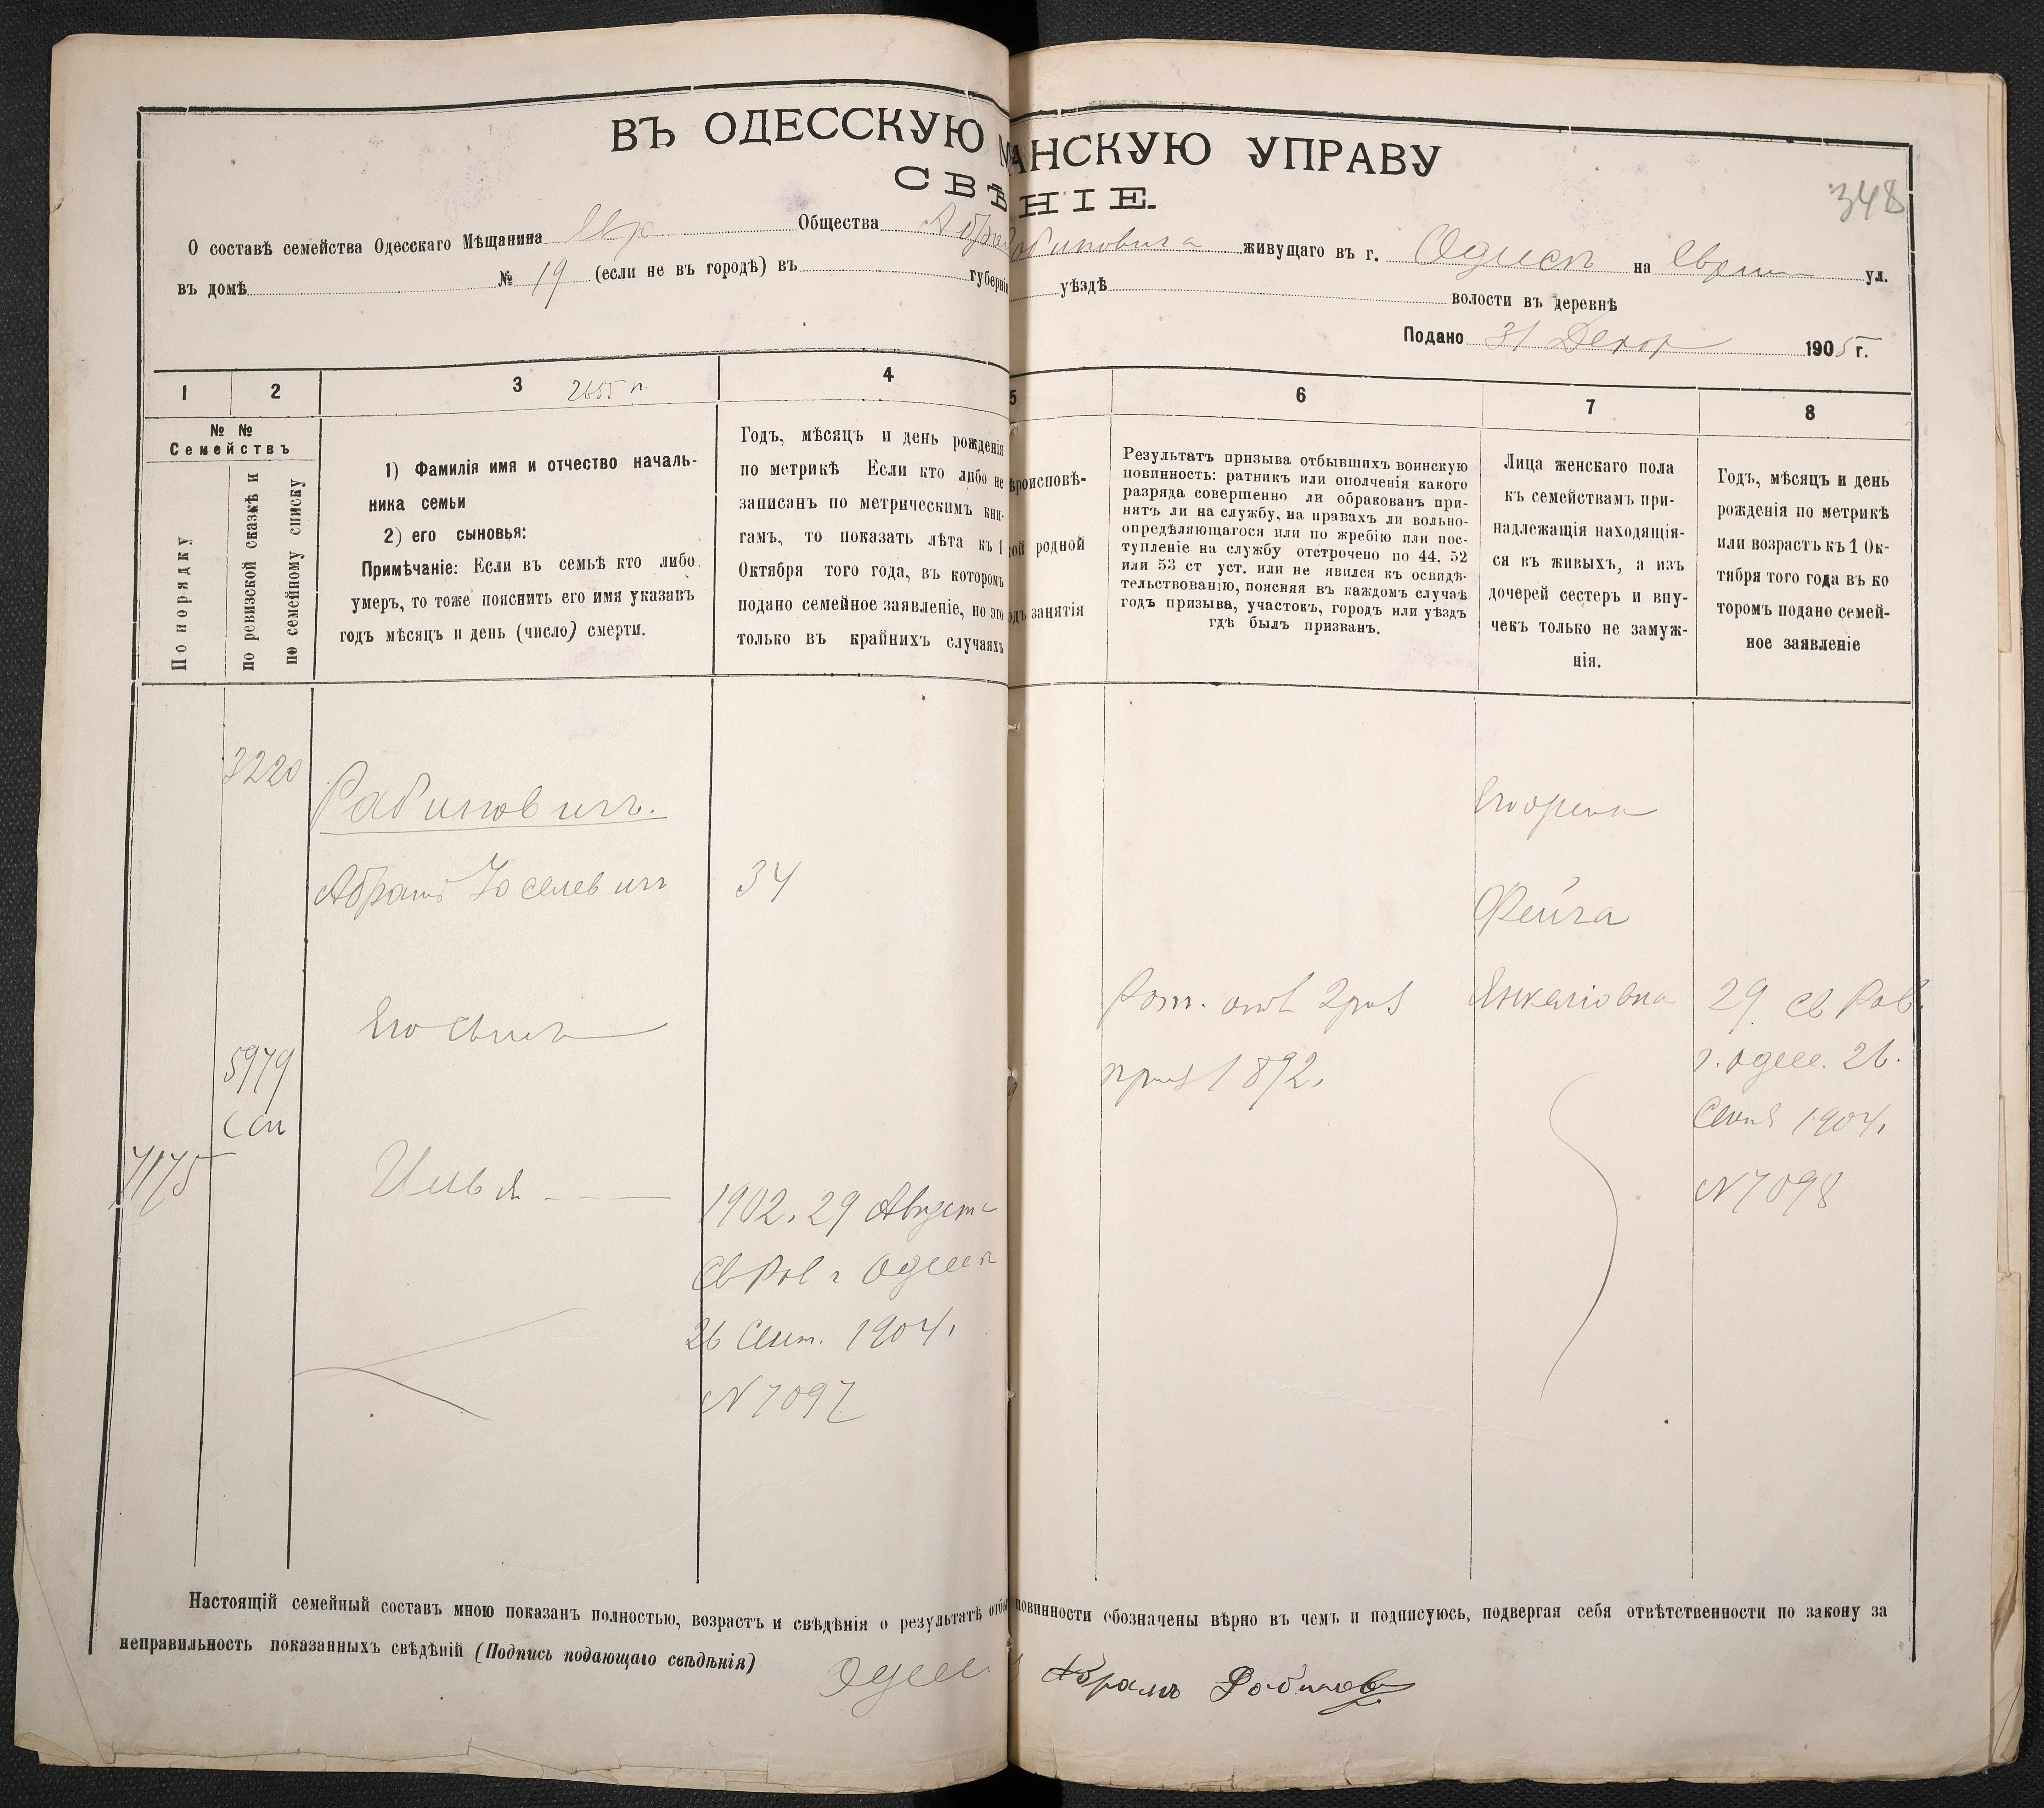 ВЪ ОДЕССКУЮ М АНСКУЮ УПРАВУ
СВѢ НІЕ.
348
О составѣ семейства Одесскаго Мѣщанина Евр. Общества Абра Рабиновича живущаго въ г. Одессѣ на ул.
въ домѣ № 19 (если не въ городѣ) въ губерніи уѣздѣ волости въ деревнѣ
Подано 31 Декабр 1905 г.
1
2
3
2655 п.
4
5
6
7
8
№ №
Семействъ
По порядку
по ревизской сказкѣ и
по семейному списку
1) Фамилія имя и отчество началь-
ника семьи
2) его сыновья:
Примѣчаніе: Если въ семьѣ кто либо
умеръ, то тоже пояснить его имя указавъ
годъ мѣсяцъ и день (число) смерти.
Годъ, мѣсяцъ и день рожденія
по метрикѣ Если кто либо не
записанъ по метрическимъ кни-
гамъ, то показать лѣта къ 1
Октября того года, въ которомъ
подано семейное заявленіе, но это
только въ крайнихъ случаяхъ
ѣроисповѣ-
ой родной
одъ занятія
Результатъ призыва отбывшихъ воинскую
повинность: ратникъ или ополченія какого
разряда совершенно ли обракованъ при-
нятъ ли на службу, на правахъ ли вольно-
опредѣляющагося или по жребію или пос-
тупленіе на службу отстрочено по 44. 52
или 53 ст уст. или не явился къ освидѣ-
тельствованію, поясняя въ каждомъ случаѣ
годъ призыва, участокъ, городъ или уѣздъ
гдѣ былъ призванъ.
Лица женскаго пола
къ семействамъ при-
надлежащія находящія-
ся въ живыхъ, а изъ
дочерей сестеръ и вну-
чекъ только не замуж-
нія.
Годъ, мѣсяцъ и день
рожденія по метрикѣ
или возрастъ къ 1 Ок-
тября того года въ ко
торомъ подано семей-
ное заявленіе
3220
Рабиновичъ.
Абрамъ Іоселевичъ
34
Его сынъ
5979
сп
7175
Илья
1902. 29 Августа
Св Рав г Одессы
26 Сент. 1904.
N 7097
Рат. опол 2 раз
приз 1892.
Его жена
Фейга
Янкелiовна
29 св Рав.
г. Одес. 26.
Сент 1904.
N 7098
Настоящій семейный составъ мною показанъ полностью, возрастъ и свѣдѣнія о результатѣ отбы повинности обозначены вѣрно въ чемъ и подписуюсь, подвергая себя отвѣтственности по закону за
неправильность показанныхъ свѣдѣній (Подпись подающаго свѣдѣнія)
Абрамъ Рабинов